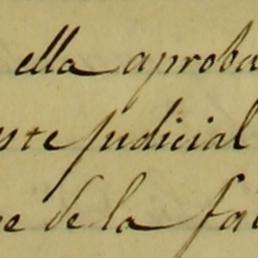 ella aproba
ste judicial
e de la fa